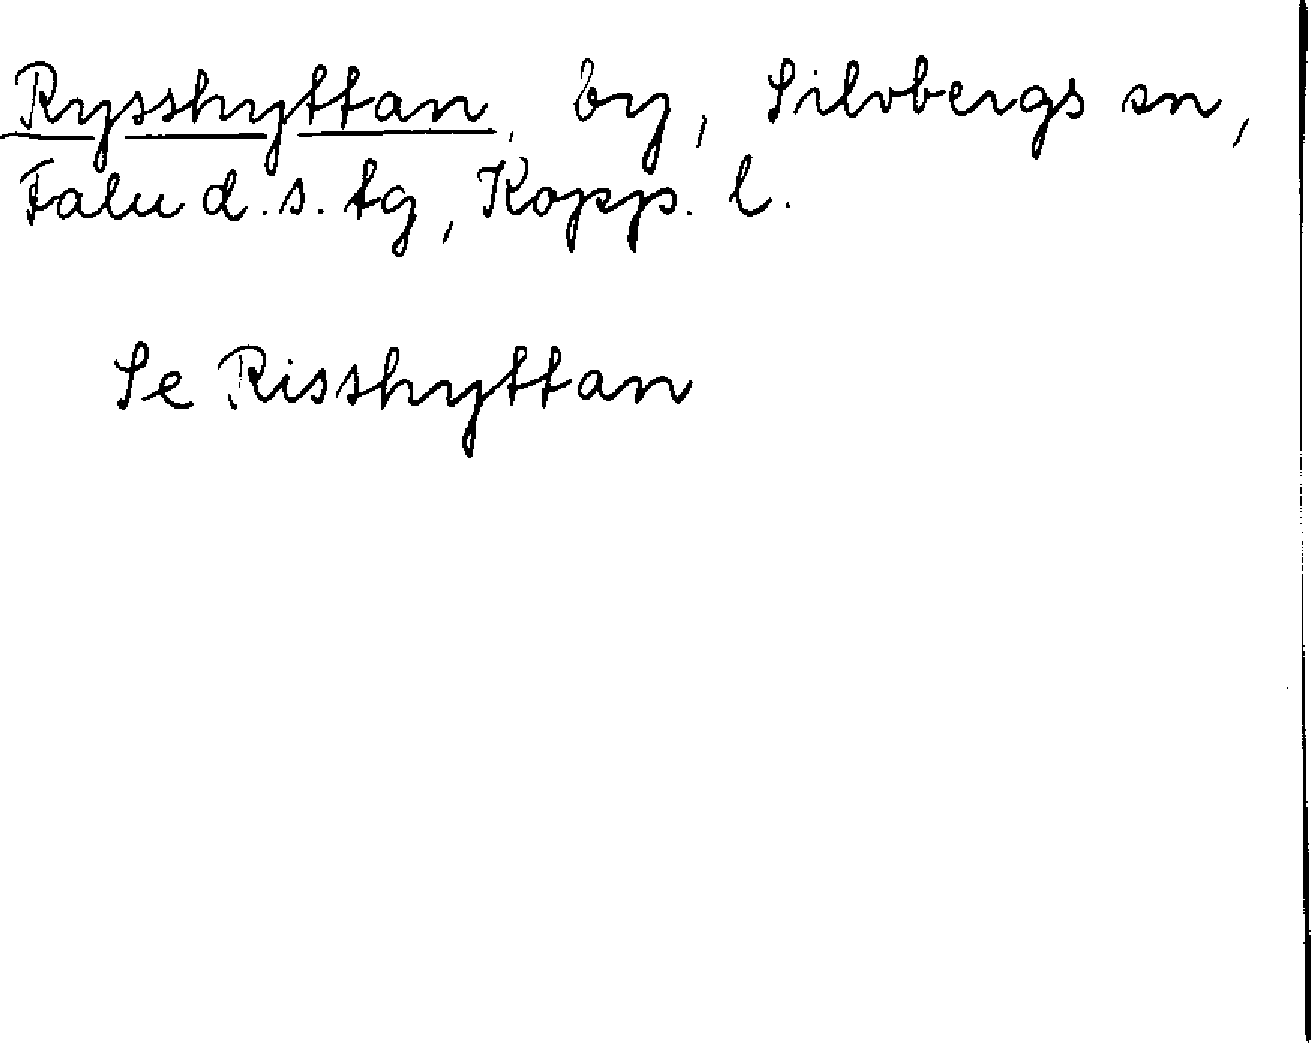 Rysshyttan, by, Silvbergs sn,
Falu d. s. tg, Kopp. l.
Se Risshyttan